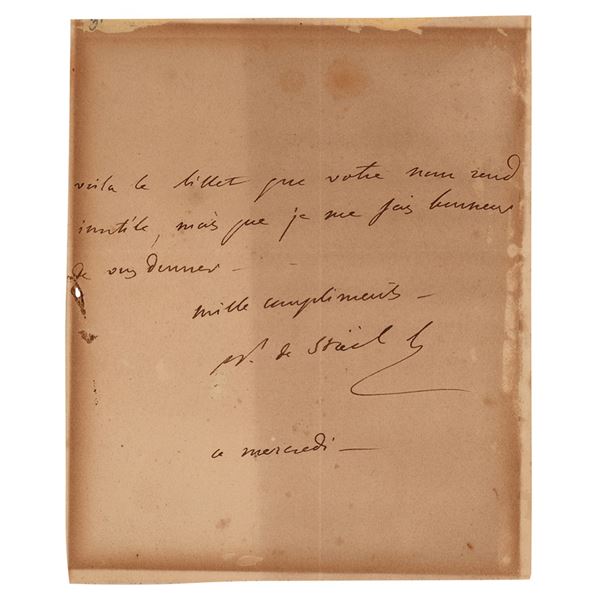 3
voila le billet que votre nom rend
inutile, mais que je me fais honneur
de vous donner –
mille compliments –
de Staël h
ce mercredi –